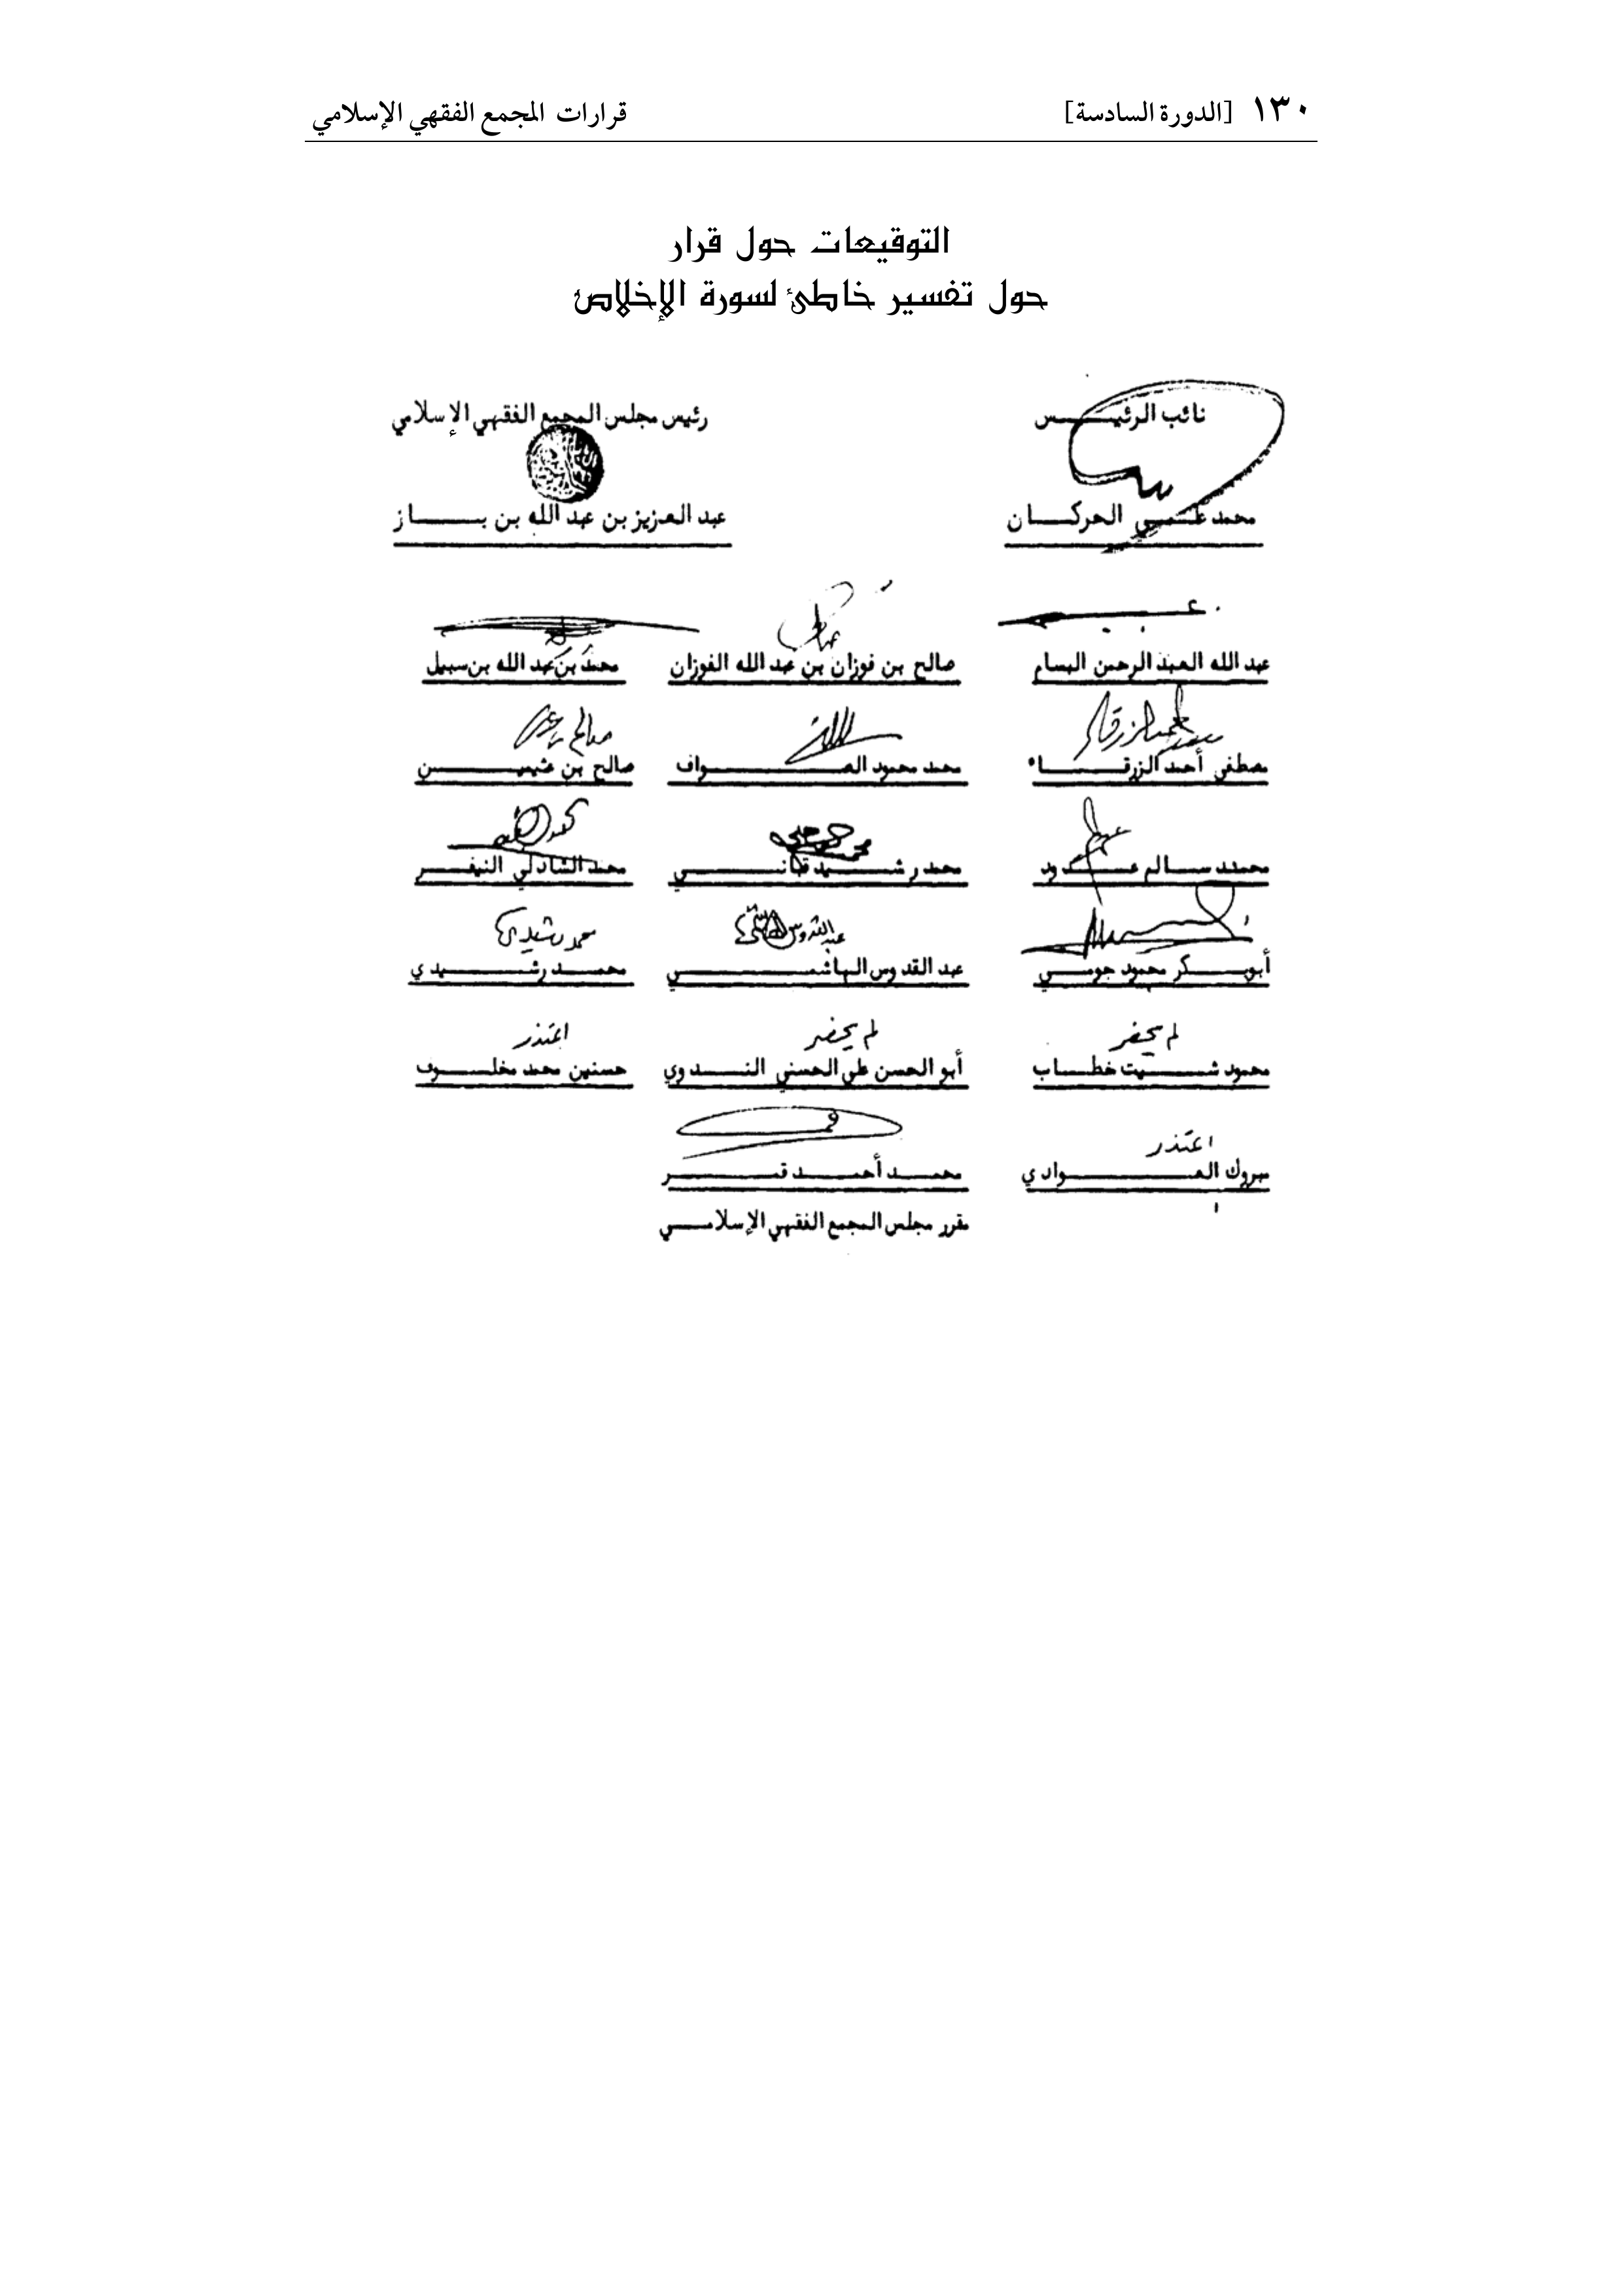 ١٣٠ [الدورة السادسة] قرارات المجمع الفقهي الإسلامي
التوقيعات حول قرار
حول تفسير خاطئ لسورة الإخلاص
نائب الرئيس رئيس مجلس المجمع الفقهي الإسلامي
محمد علي الحركان عبد العزيز بن عبد الله بن باز
عبد الله العبد الرحمن البسام صالح بن فوزان بن عبد الله الفوزان محمد بن عبد الله بن سبيل
مصطفى أحمد الزرقاء محمد محمود الصواف صالح بن عثيمين
محمد سالم عدود محمد رشيد قباني محمد الشاذلي النيفر
عبد القدوس الهاشمي محمد رشيدي
أبو بكر محمود جومي عبد القدوس الهاشمي محمد رشيدي
لم يحضر لم يحضر اعتذر
محمود شيت خطاب أبو الحسن علي الحسني الندوي حسنين محمد مخلوف
اعتذر
مبروك العوادي محمد أحمد قمر
مقرر مجلس المجمع الفقهي الإسلامي